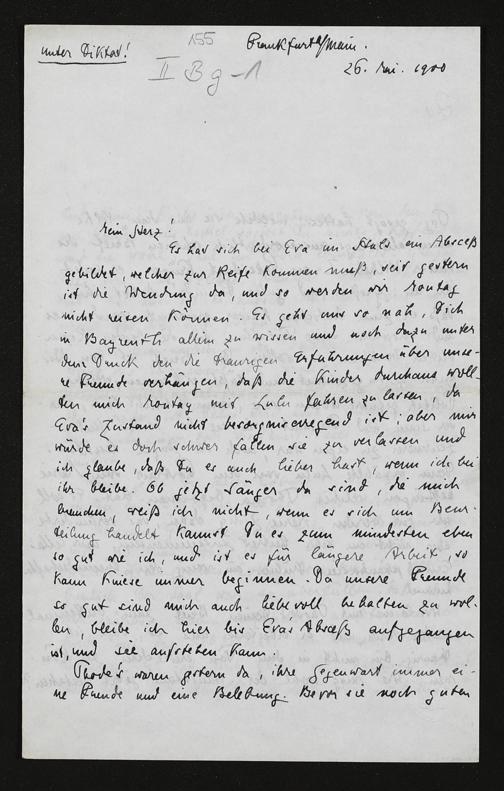 unter Diktat!
155
Frankfurt a/Main.
II B g - 1
26. Mai. 1900
Mein Herz!
Es hat sich bei Eva im Hals ein Absceß
gebildet, welcher zur Reife kommen muß, seit gestern
ist die Wendung da, und so werden wir Montag
nicht reisen können. Es geht mir so nah, Dich
in Bayreuth allein zu wissen und noch dazu unter
dem Druck den die traurigen Erfahrungen über unse-
re Freunde verhängen, daß die Kinder durchaus woll-
ten mich Montag mit Lulu fahren zu lassen, da
Eva's Zustand nicht besorgniserregend ist; aber mir
würde es doch schwer fallen sie zu verlassen und
ich glaube, daß Du es auch lieber hast, wenn ich bei
ihr bleibe. Ob jetzt Sänger da sind, die mich
brauchen, weiß ich nicht, wenn es sich um Beur-
teilung handelt kannst Du es zum mindesten eben
so gut wie ich, und ist es für längere Arbeit, so
kann Kniese immer beginnen. Da unsere Freunde
so gut sind mich auch liebevoll behalten zu wol-
len, bleibe ich hier bis Eva's Absceß aufgegangen
ist, und sie aufstehen kann.
Thode's waren gestern da, ihre Gegenwart immer ei-
ne Freude und eine Belebung. Bevor sie noch guten